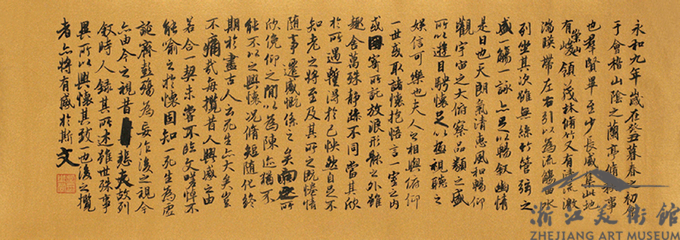 永和九年歲在癸丑暮春之初
于會稽山陰之蘭亭脩稧事
也羣賢畢至少長咸集此地
有崇山峻領茂林脩竹又有清流激
湍暎帶左右引以為流觴曲水
列坐其次雖無絲竹管弦之
盛一觴一詠亦足以暢叙幽情
是日也天朗氣清惠風和暢仰
觀宇宙之大俯察品類之盛
所以遊目騁懷足以極視聽之
娛信可樂也夫人之相與俯仰
一世或取諸懷抱悟言一室之內
或因寄所託放浪形骸之外雖
趣舍萬殊靜躁不同當其欣
於所遇蹔得於己怏然自足不
知老之將至及其所之既惓情
隨事遷感慨係之矣向之所
欣俛仰之間以為陳迹猶不
能不以之興懷況脩短隨化終
期於盡古人云死生亦大矣豈
不痛哉每攬昔人興感之由
若合一契未嘗不臨文嗟悼不
能喻之於懷固知一死生為虛
誕齊彭殤為妄作後之視今
亦由今之視昔悲夫故列
叙時人錄其所述雖世殊事
異所以興懷其致一也後之攬
者亦將有感於斯文
浙江美術館
ZHEJIANG ART MUSEUM